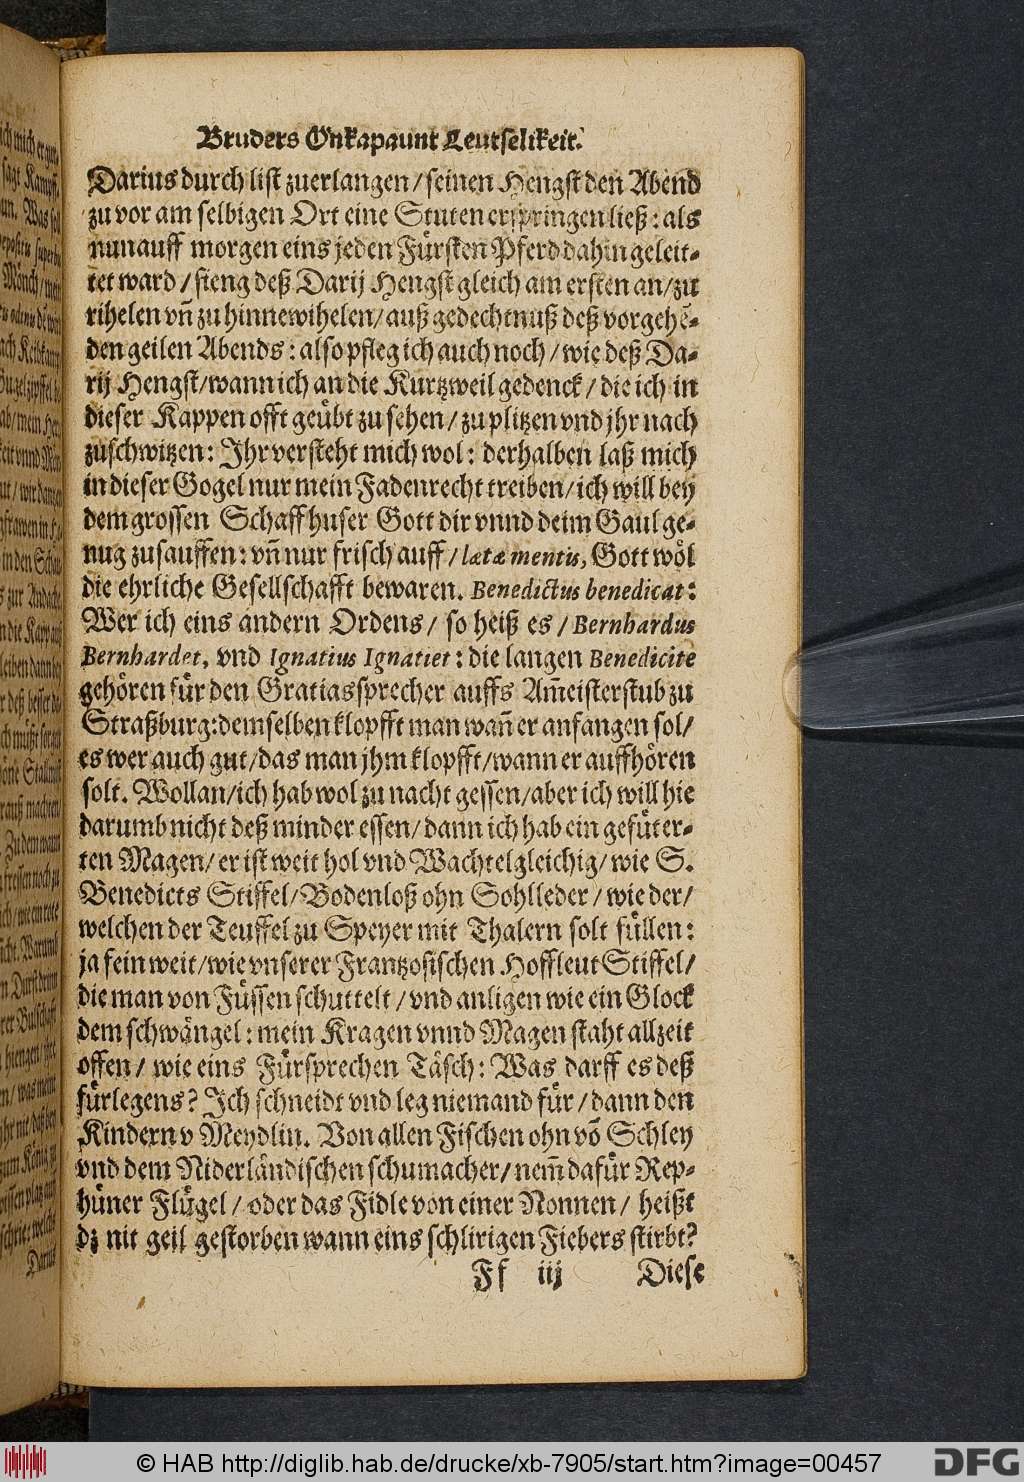 Bruders Onkapaunt Leutselikeit.
Darius durch list zuerlangen / seinen Hengst den Abend
zu vor am selbigen Ort eine Stuten erspringen ließ : als
nun auff morgen eins jeden Fürsten Pferd dahin geleit-
tet ward / fieng deß Darij Hengst gleich am ersten an / zu
rihelen vñ zu hinnewihelen / auß gedechtnuß deß vorgehẽ-
den geilen Abends : also pfleg ich auch noch / wie deß Da-
rij Hengst / wann ich an die Kurtzweil gedenck / die ich in
dieser Kappen offt geübt zu sehen / zu plitzen vnd jhr nach
zuschwitzen : Jhr versteht mich wol : derhalben laß mich
in dieser Gogel nur mein Fadenrecht treiben / ich will bey
dem grossen Schaffhuser Gott dir vnnd deim Gaul ge-
nug zusauffen : vñ nur frisch auff / lætæ mentis, Gott wöl
die ehrliche Gesellschafft bewaren. Benedictus benedicat :
Wer ich eins andern Ordens / so heiß es / Bernhardus
Bernhardet, vnd Ignatius Ignatiet : die langen Benedicite
gehören für den Gratiassprecher auffs Am̃eisterstub zu
Straßburg : demselben klopfft man wañ er anfangen sol /
es wer auch gut / das man jhm klopfft / wann er auffhören
solt. Wollan / ich hab wol zu nacht gessen / aber ich will hie
darumb nicht deß minder essen / dann ich hab ein gefüter-
ten Magen / er ist weit hol vnd Wachtelgleichig / wie S.
Benedicts Stiffel / Bodenloß ohn Sohlleder / wie der /
welchen der Teuffel zu Speyer mit Thalern solt füllen :
ja fein weit / wie vnserer Frantzosischen Hoffleut Stiffel /
die man von Füssen schuttelt / vnd anligen wie ein Glock
dem schwängel : mein Kragen vnnd Magen staht allzeit
offen / wie eins Fürsprechen Täsch : Was darff es deß
fürlegens ? Jch schneidt vnd leg niemand für / dann den
Kindern v Meydlin. Von allen Fischen ohn võ Schley
vnd dem Niderländischen schumacher / nem̃ dafür Rep-
hüner Flügel / oder das Fidle von einer Nonnen / heißt
dz nit geil gestorben wann eins schlirigen Fiebers stirbt ?
Ff iij Diese
© HAB http://diglib.hab.de/drucke/xb-7905/start.htm?image=00457
DFG